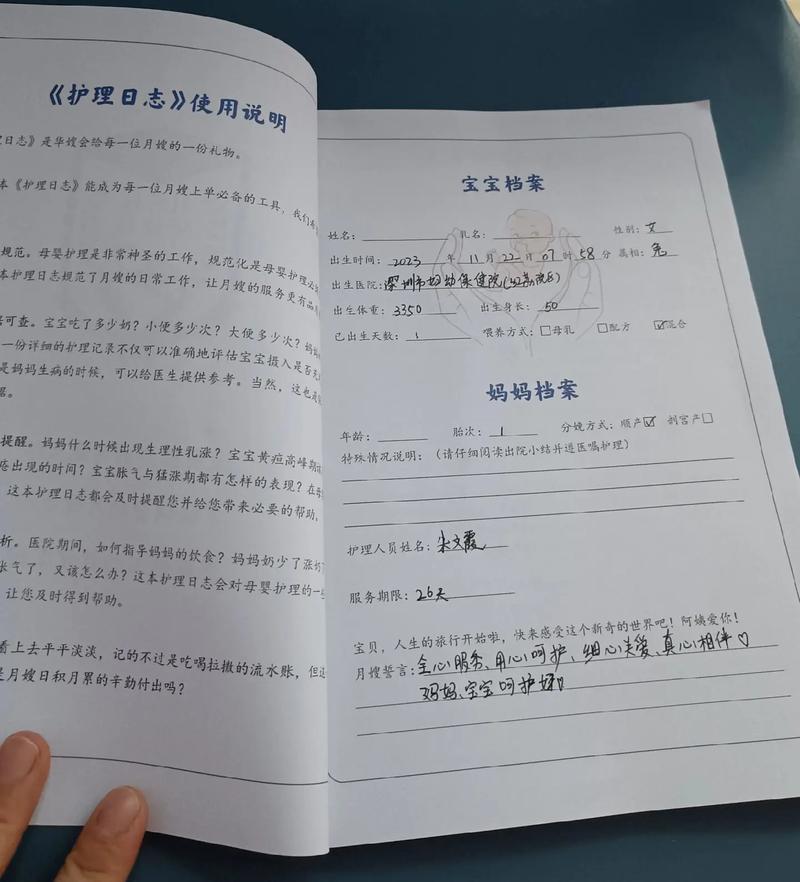 《护理日志》使用说明
日志》是华嫂会给每一位月嫂的一份礼物。
本《护理日志》能成为每一位月嫂上单必备的工具,我们
规范。母婴护理是非常神圣的工作,规范化是母婴护理必
本护理日志规范了月嫂的日常工作,让月嫂的服务更有品
可查。宝宝吃了多少奶?小便多少次?大便多少次?妈妈
一份详细的护理记录不仅可以准确地评估宝宝摄入是否
是妈妈生病的时候,可以给医生提供参考。当然,这也是
提醒。妈妈什么时候出现生理性乳涨?宝宝黄疸高峰期
出现的时间?宝宝胀气与猛涨期都有怎样的表现?在
这本护理日志都会及时提醒您并给您带来必要的帮助。
析。医院期间,如何指导妈妈的饮食?妈妈奶少了涨奶
胀气了,又该怎么办?这本护理日志会对母婴护理的一
让您及时得到帮助。
看上去平平淡淡,记的不过是吃喝拉撒的流水账,但
是月嫂日积月累的辛勤付出吗?
宝宝档案
姓名: 乳名: 性别:女
出生时间:2023年11月22日07时58分 属相:兔
出生医院:深圳市妇幼保健院(红荔院区)
出生体重:3350 出生身长:50
已出生天数:1 喂养方式:□母乳 □配方 ☑混合
妈妈档案
年龄: 胎次:1 分娩方式:顺产☑ 剖宫产□
特殊情况说明:(请仔细阅读出院小结并遵医嘱护理)
护理人员姓名:朱文霞
服务期限:26天
宝贝,人生的旅行开始啦,快来感受这个新奇的世界吧!阿姨爱你!
月嫂誓言:全心服务、用心呵护、细心关爱、真心相伴♡
妈妈、宝宝呵护好♡